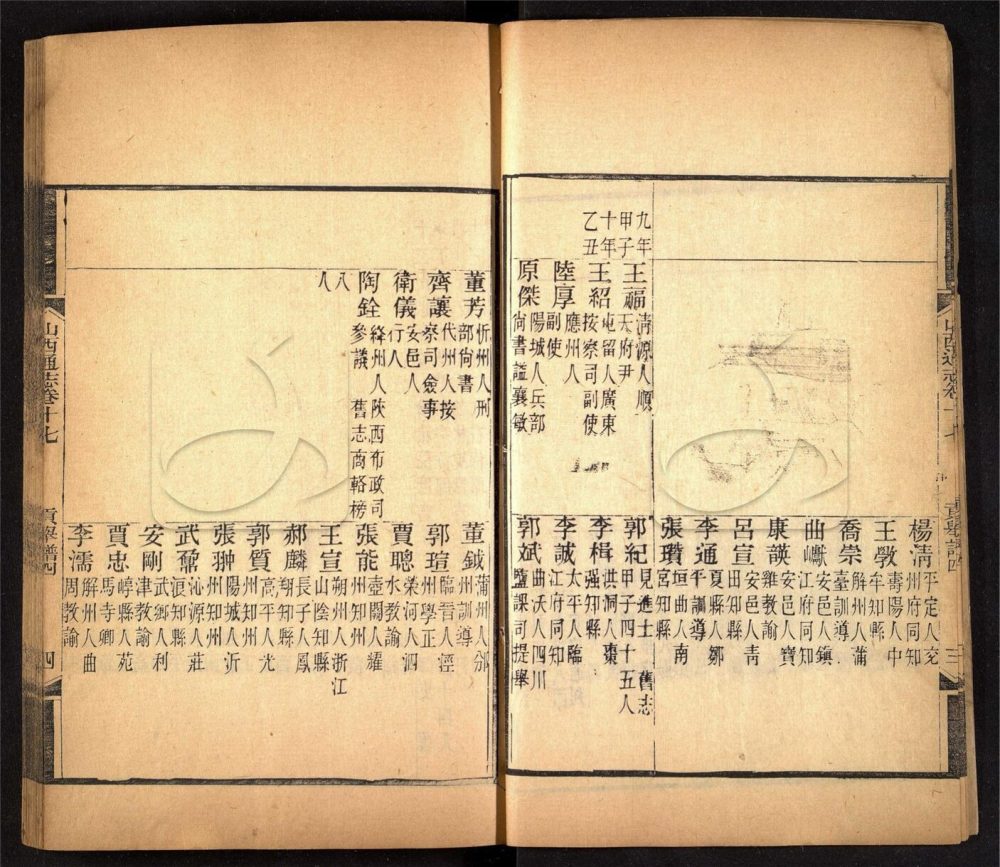 楊淸 平定人兖州府同知
王斆 壽陽人中牟知縣
喬崇 解州人蒲臺訓導
曲巘 安邑人鎮江府同知
康韺 安邑人寶雞教諭
呂宣 安邑人青田知縣
李通 夏縣人鄒平訓導
張瓚 垣曲人南宮知縣
九年甲子
王福 淸源人順天府尹
郭紀 見進士 舊志甲子四十五人
十年乙丑
王紹 屯留人廣東按察司副使
李楫 洪洞人棗强知縣
陸厚 應州人副使
李誠 太平人臨江府同知
原傑 陽城人兵部尙書謚襄敏
郭斌 曲沃人四川鹽課司提舉
山西通志卷十七
貢舉譜四
三
董芳 忻州人刑部尙書
董鉞 蒲州人邠州訓導
齊讓 代州人按察司僉事
郭瑄 臨晉人涇州學正
衛儀 安邑人行人
賈聰 榮河人泗水教諭
陶銓 絳州人陝西布政司參議 舊志商輅榜
八人
張能 壺關人耀州知州
王宣 朔州人浙江山陰知縣
郝麟 長子人鳳翔知縣
郭質 高平人光州知州
張翀 陽城人沂州知州
武鼐 沁源人莊浪知縣
安剛 武鄉人利津教諭
賈忠 崞縣人苑馬寺卿
李濡 解州人曲周教諭
山西通志卷十七
貢舉譜四
四